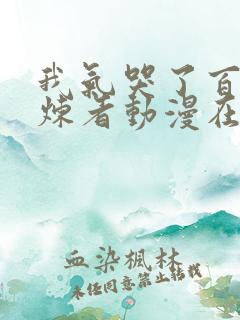 我氣哭了百
煉者動漫在
血染楓林
未经同意禁止转载